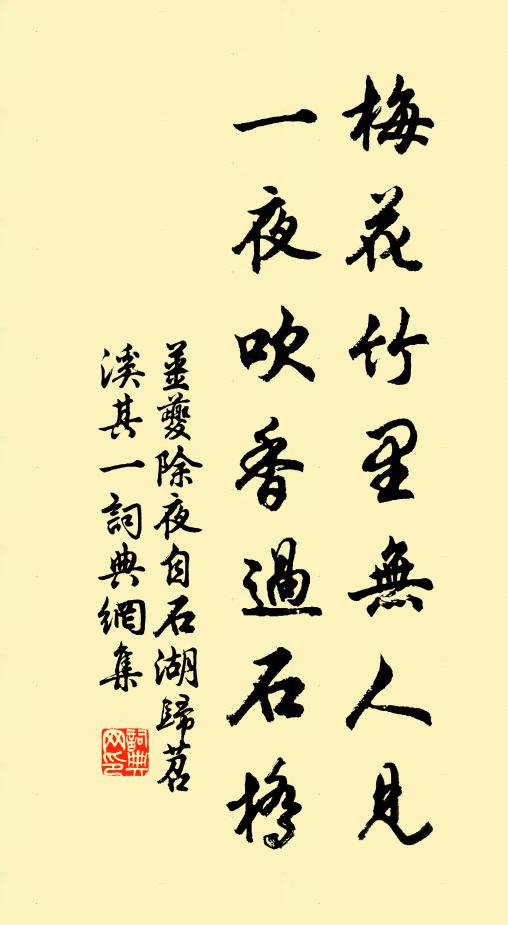 梅花竹里無人見
一夜吹香過石橋
姜夔除夜自石湖歸苕
溪其一詞典網集
詞典
网印